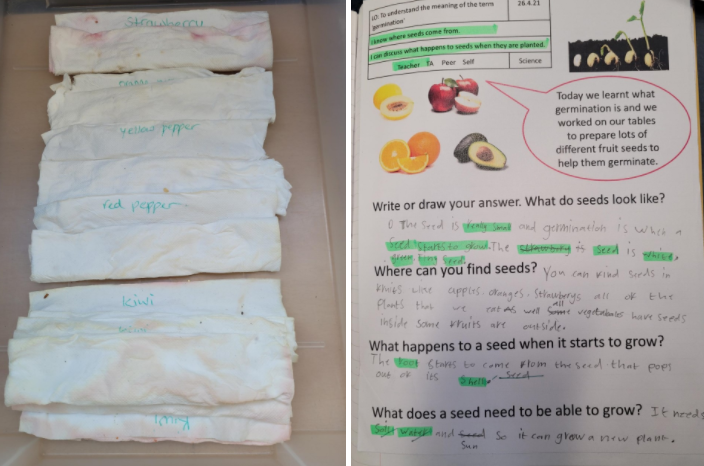 strawberry
yellow pepper
red pepper
kiwi
kiwi
LO: To understand the meaning of the term
'germination'
26.4.21
I know where seeds come from.
I can discuss what happens to seeds when they are planted.
Teacher TA Peer Self
Science
Today we learnt what
germination is and we
worked on our tables
to prepare lots of
different fruit seeds to
help them germinate.
Write or draw your answer. What do seeds look like?
The seed is and germination is when a
seed starts to grow. The strawberry is seed is white.
seed.
Where can you find seeds? You can find seeds in
fruits like apples, oranges, strawberys all of the
plants that we eat as well some all vegetables have seeds
inside some fruits are outside.
What happens to a seed when it starts to grow?
The root starts to come from the seed that pops
out of its shell. seed
What does a seed need to be able to grow? It needs
soil water and seed so it can grow a new plant.
Sun